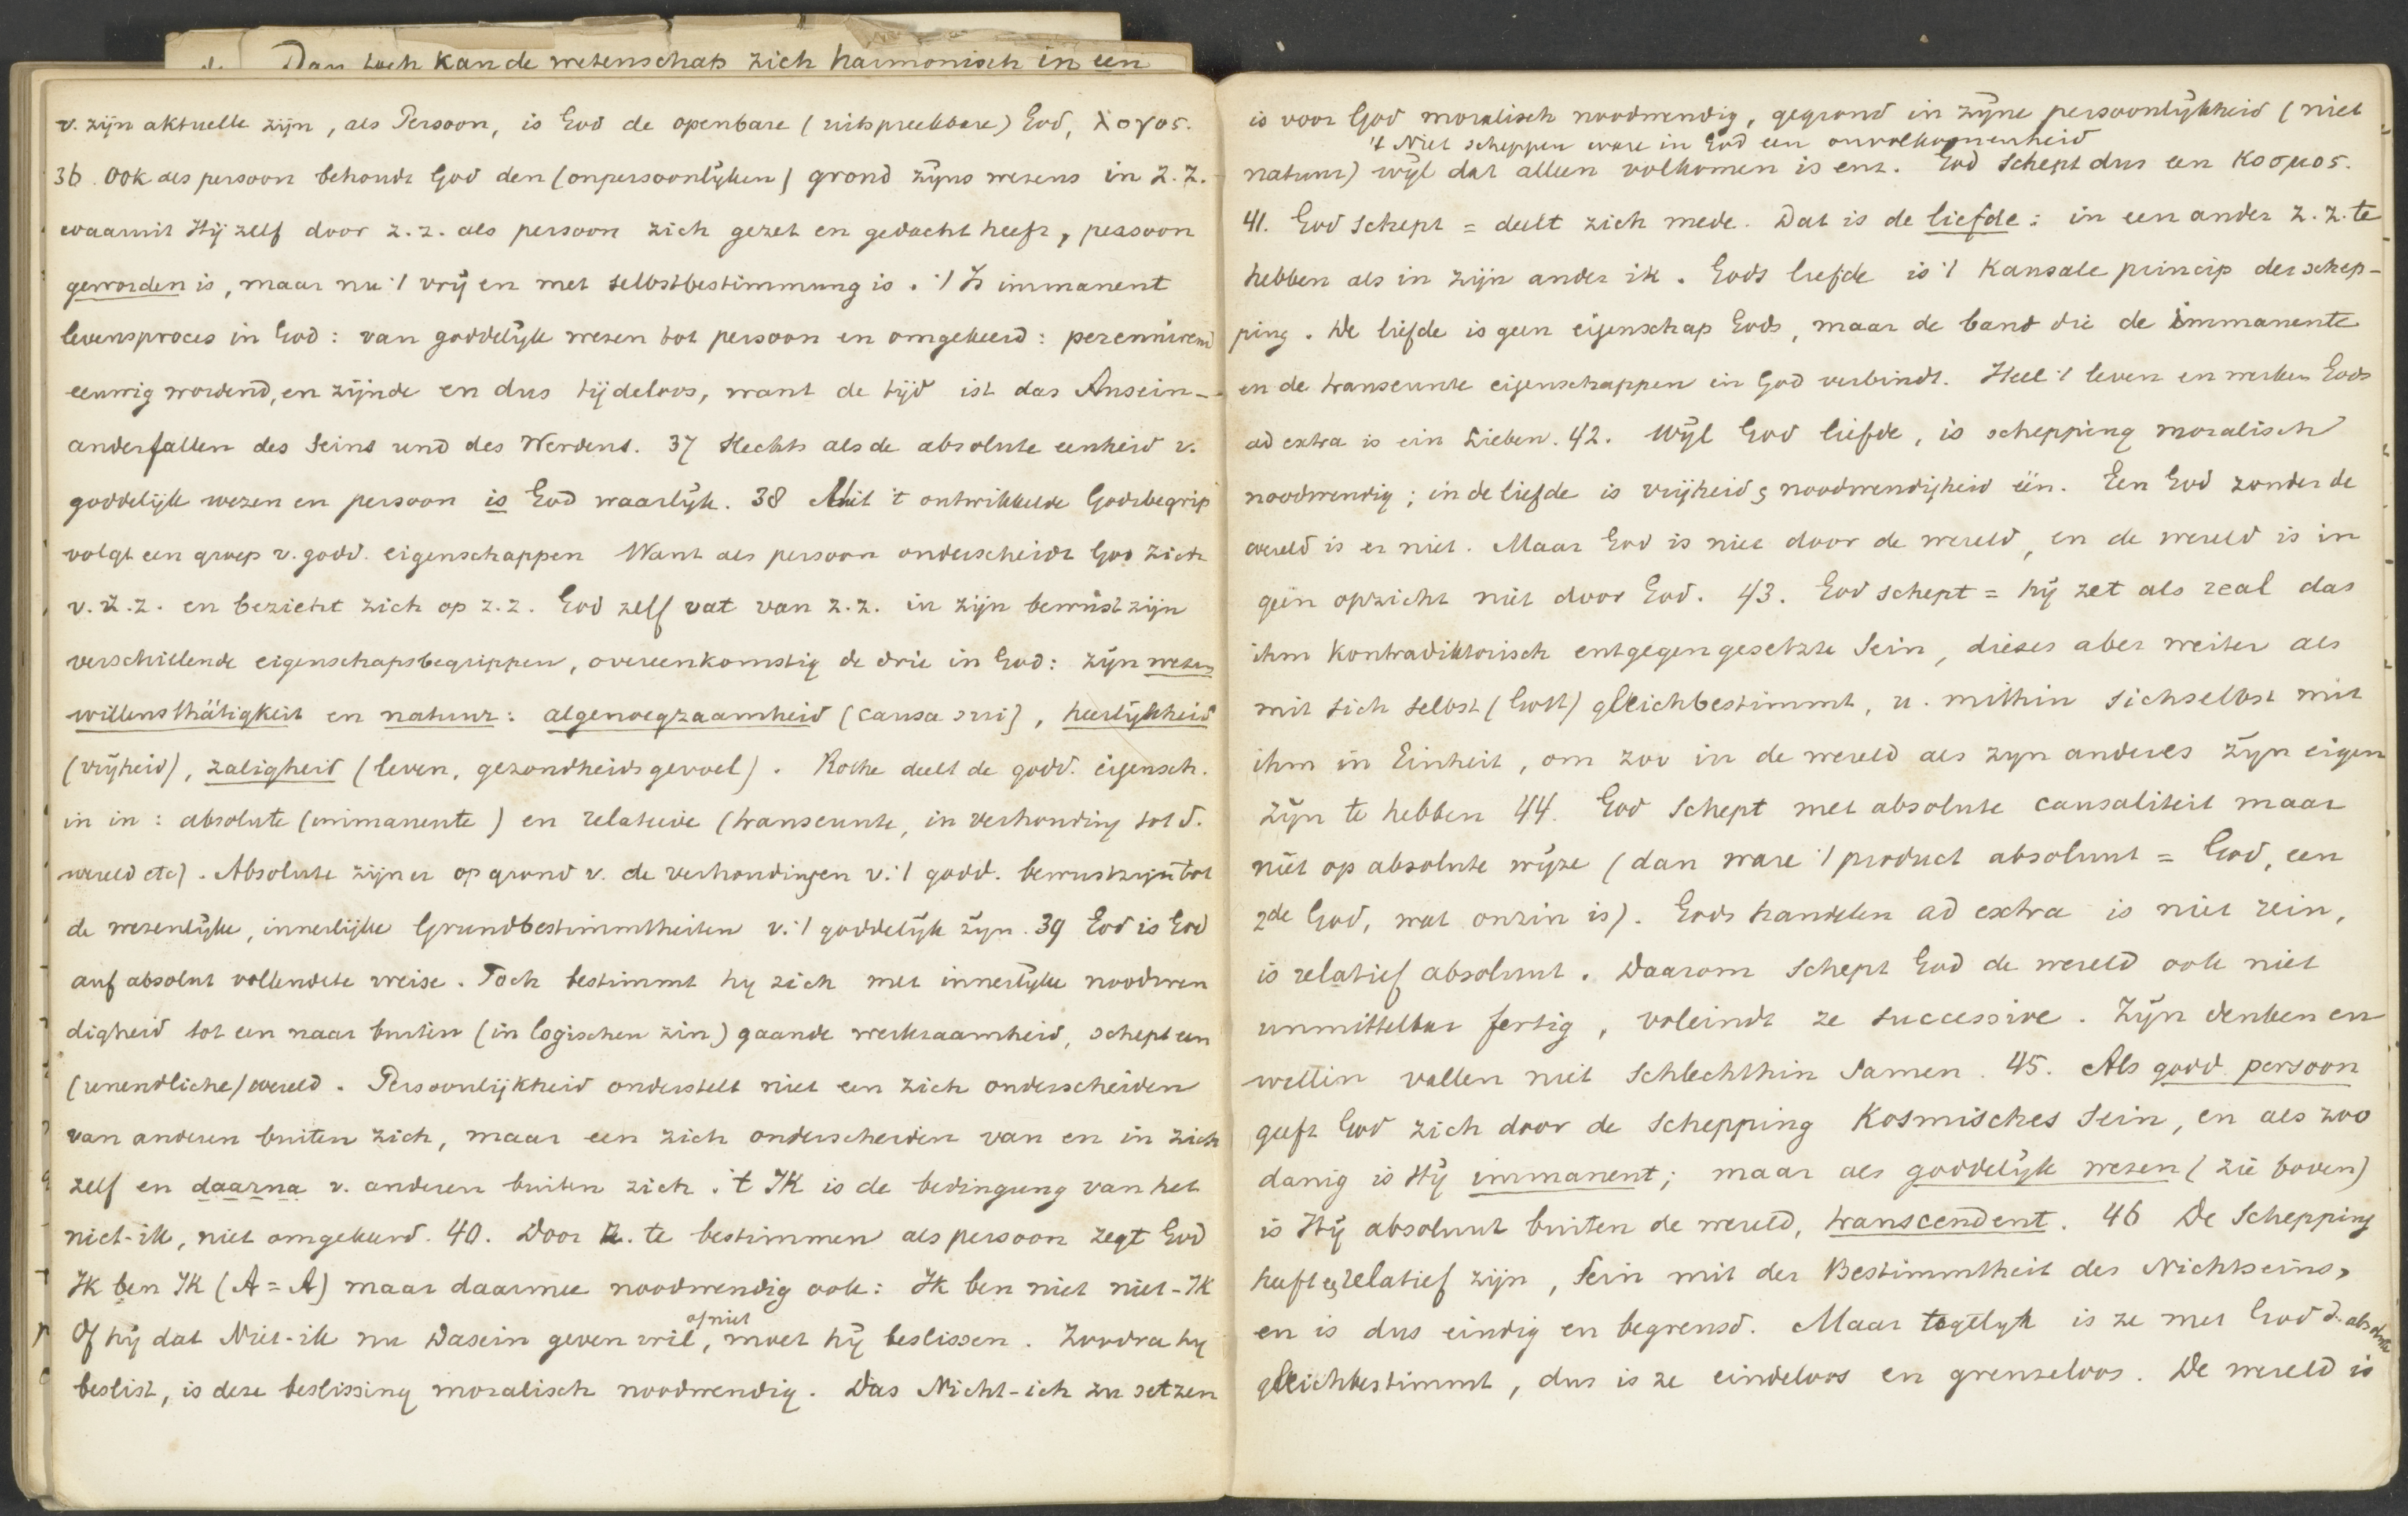 Dan toch kan de wetenschap zich harmonisch in een
v. zijn aktuelle zijn, als Persoon, is God de openbare (uitspreekbare) God, λογος.
36. Ook als persoon behoudt God den (onpersoonlijken) grond zijns wezens in z.z.
waaruit Hij zelf door z.z. als persoon zich gezet en gedacht heeft, persoon
geworden is, maar nu 't vrij en met selbstbestimmung is. 't Is immanent
levensproces in God: van goddelijk wezen tot persoon en omgekeerd: perennirend
eeuwig wordend, en zijnde en dus tijdeloos, want de tijd ist das Ausein-
anderfallen des Seins und des Werdens. 37 Slechts als de absolute eenheid v.
goddelijk wezen en persoon is God waarlijk. 38 Uit 't ontwikkelde Godsbegrip
volgt een groep v. godd. eigenschappen Want als persoon onderscheidt God zich
v. z.z. en bezieht zich op z.z. God zelf vat van z.z. in zijn bewustzijn
verschillende eigenschapsbegrippen, overeenkomstig de drie in God: zijn wezen
willensthätigkeit en natuur: algenoegzaamheid (causa sui), heerlijkheid
(vrijheid), zaligheid (leven, gezondheidsgevoel). Rothe deelt de godd. eigensch.
in in: absolute (immanente) en relatieve (transeunte, in verhouding tot d.
wereld etc). Absolute zijn er op grond v. de verhoudingen v. 't godd. bewustzijn tot
de wezenlijke, innerlijke Grundbestimmtheiten v. 't goddelijk zijn. 39 God is God
auf absolut vollendete weise. Toch bestimmt hij zich met innerlijke noodwen
digheid tot een naar buiten (in logischen zin) gaande werkzaamheid, schept een
(unendliche) wereld. Persoonlijkheid onderstelt niet een zich onderscheiden
van anderen buiten zich, maar een zich onderscheiden van en in zich
zelf en daarna v. anderen buiten zich. 't IK is de bedingung van het
niet-ik, niet omgekeerd. 40. Door z. te bestimmen als persoon zegt God
Ik ben IK (A = A) maar daarmee noodwendig ook: Ik ben niet niet-IK
of niet
Of hij dat Niet-ik nu Dasein geven wil, moet hij beslissen. Zoodra hij
beslist, is deze beslissing moralisch noodwendig. Das Nicht-ich zu setzen
is voor God moralisch noodwendig, gegrond in zijne persoonlijkheid (niet
't Niet scheppen ware in God een onvolkomenheid
natuur) wijl dat alleen volkomen is enz. God schept dus een Κοσμος.
41. God schept = deelt zich mede. Dat is de liefde: in een ander z.z. te
hebben als in zijn ander ik. Gods liefde is 't kausale princip der schep-
ping. De liefde is geen eigenschap Gods, maar de band die de immanente
en de transeunte eigenschappen in God verbindt. Heel 't leven en werken Gods
ad extra is ein Lieben. 42. Wijl God liefde, is schepping moralisch
noodwendig; in de liefde is vrijheid & noodwendigheid één. Een God zonder de
wereld is er niet. Maar God is niet door de wereld, en de wereld is in
geen opzicht niet door God. 43. God schept = hij zet als real das
ihm kontradiktorisch entgegengesetzte Sein, dieses aber weiter als
mit sich selbst (Gott) gleichbestimmt, u. mithin sich selbst mit
ihm in Einheit, om zoo in de wereld als zijn anderes zijn eigen
zijn te hebben 44. God schept met absolute causaliteit maar
niet op absolute wijze (dan ware 't product absoluut = God, een
2de God, wat onzin is). Gods handelen ad extra is niet rein,
is relatief absoluut. Daarom schept God de wereld ook niet
unmittelbar fertig, voleindt ze successive. Zijn denken en
willen vallen niet schlechthin samen. 45. Als godd persoon
geeft God zich door de schepping kosmisches Sein, en als zoo
danig is Hij immanent; maar als goddelijk wezen (zie boven)
is Hij absoluut buiten de wereld, transcendent. 46 De Schepping
heeft relatief zijn, Sein mit der Bestimmtheit des Nichtseins,
en is dus eindig en begrensd. Maar tegelijk is ze met God d. absolute
gleichbestimmt, dus is ze eindeloos en grenzeloos. De wereld is